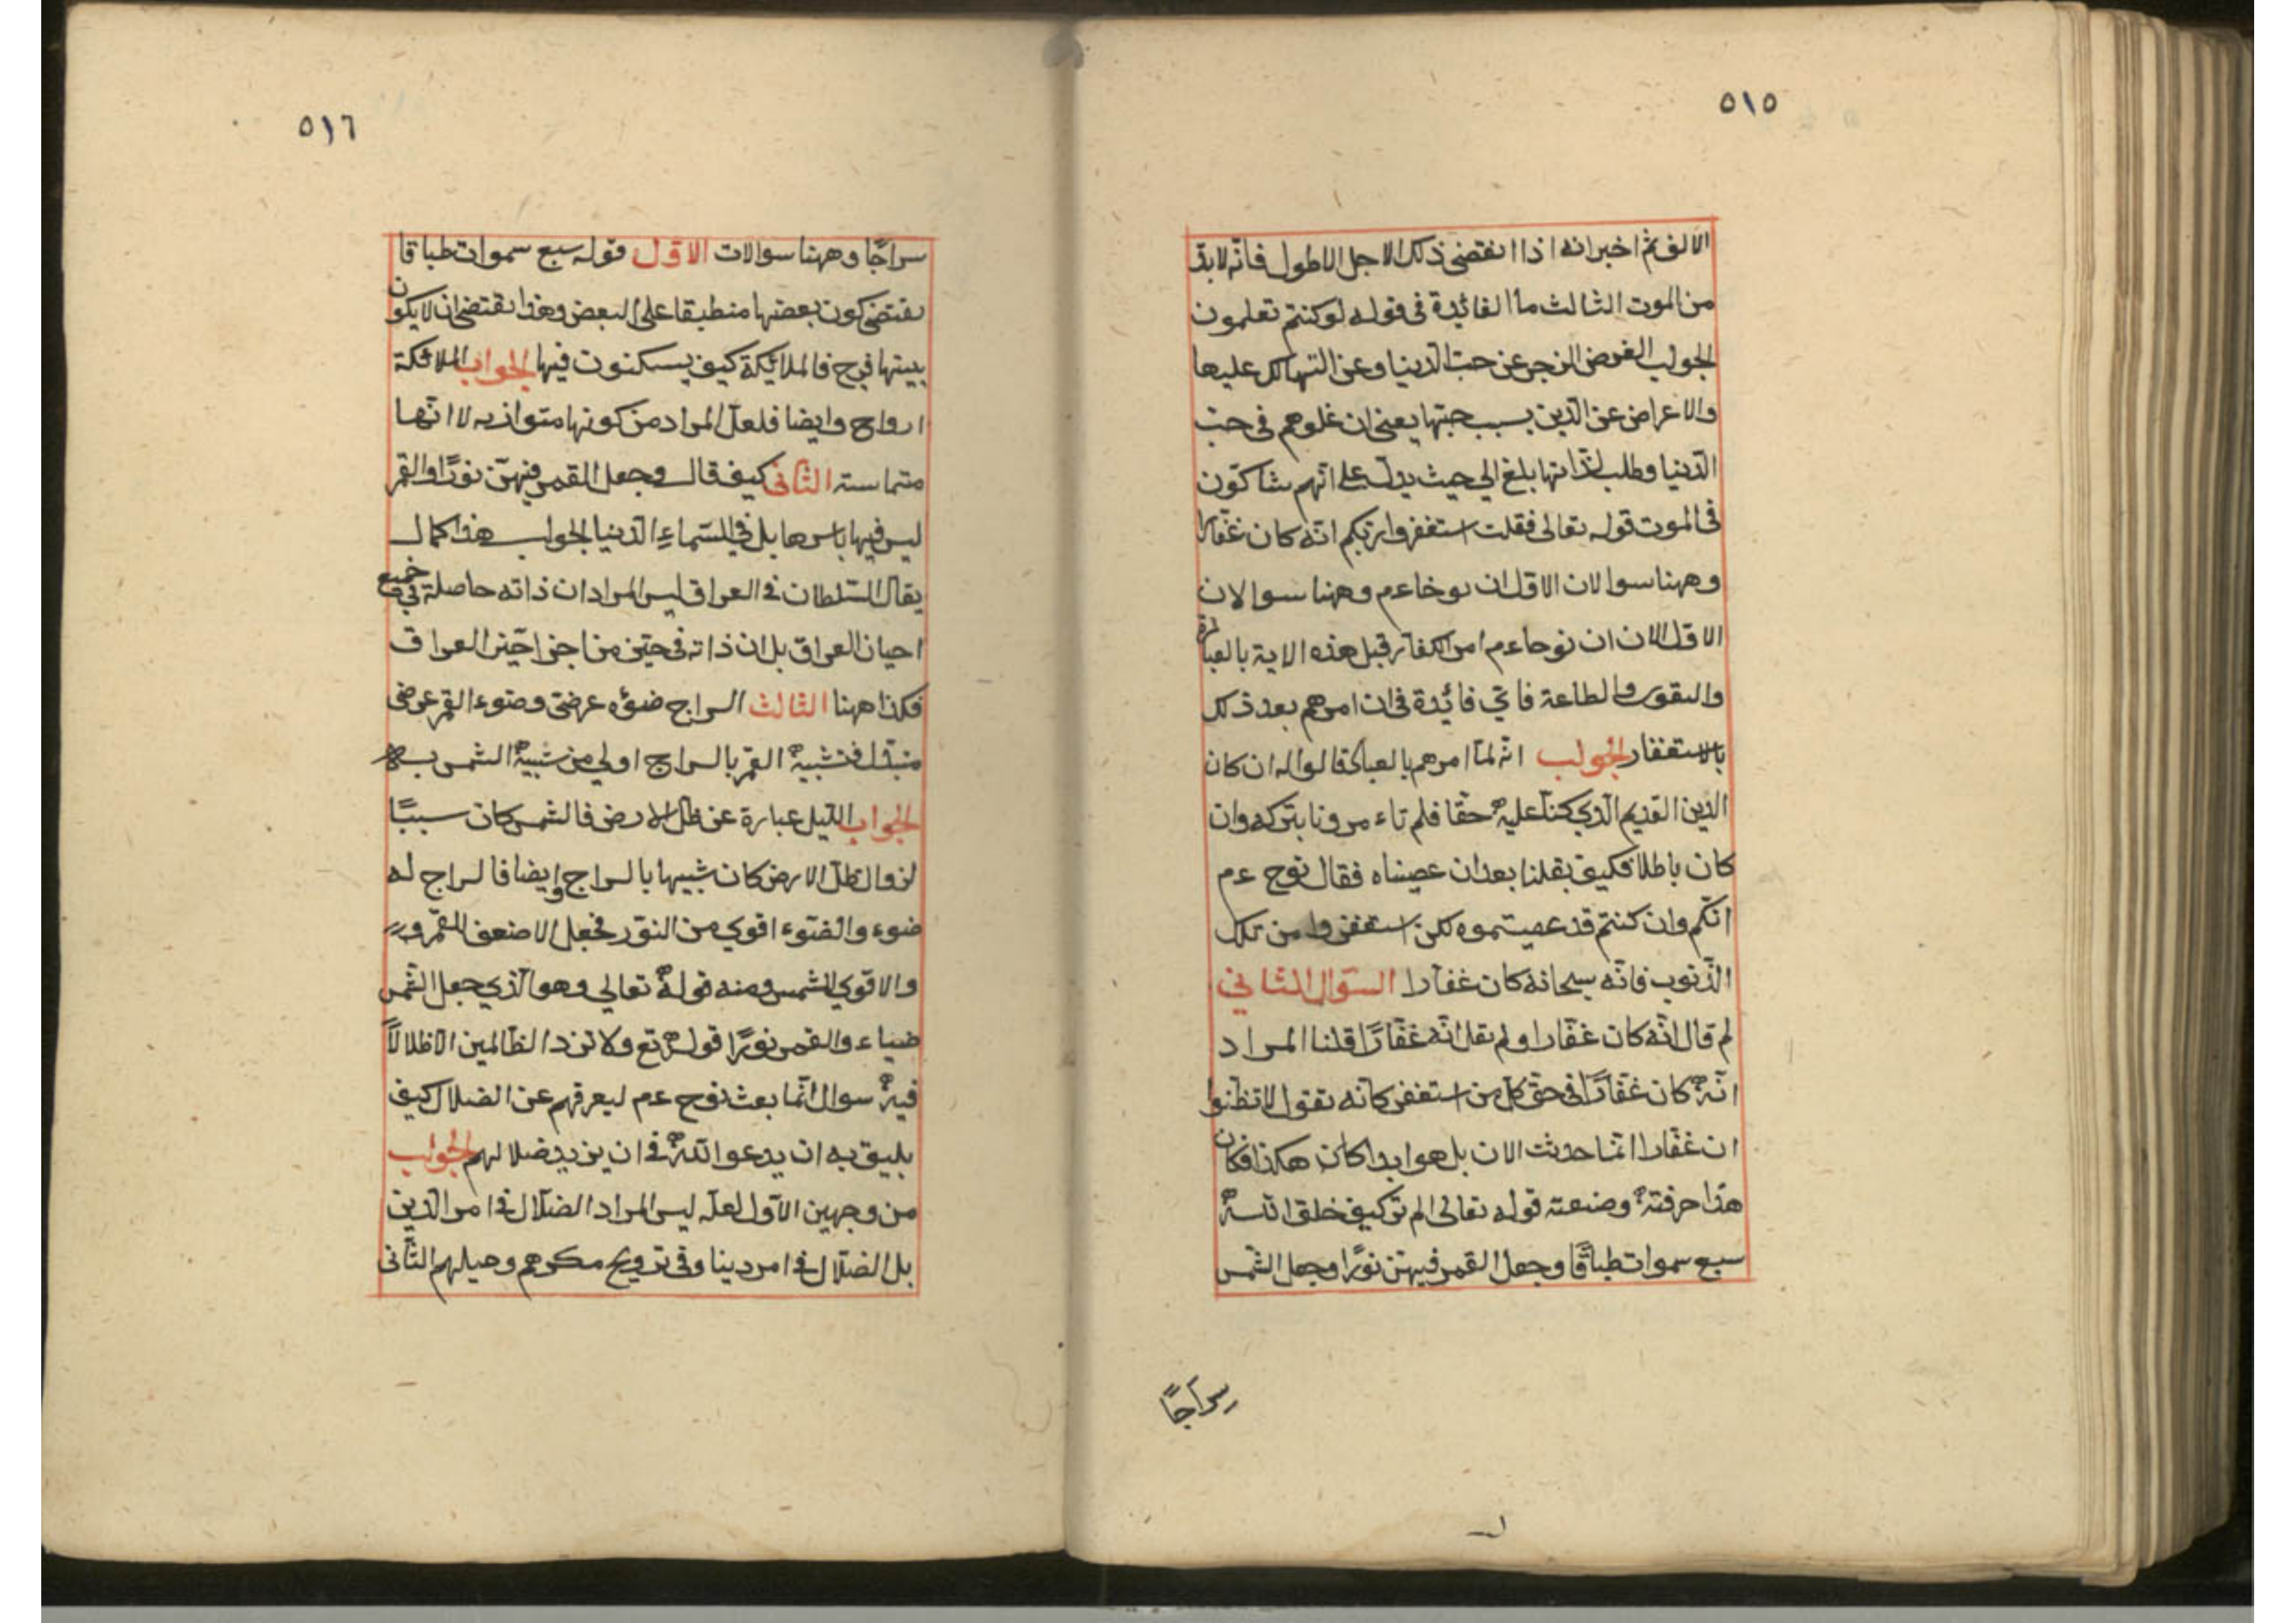 ٥١٥
الالف ثم اخبر انه اذا انقضى ذلك الاجل الاطول فانّه لا بدّ
من الموت الثالث ما الفائدة فى قوله لو كنتم تعلمون
الجواب الغرض الزجر عن حبّ الدّنيا وعن التهالك عليها
والاعراض عن الدّين بسبب حبّها يعنى ان غلوهم فى حبّ
الدّنيا وطلب لذّاتها بلغ الى حيث يدلّ على انّهم شاكّون
فى الموت قوله تعالى فقلت استغفروا ربّكم انّه كان غفّارًا
وههنا سوالان الاوّل ان نوحا عم وههنا سوالان
الاوّل الان ان نوحا عم امر الكفّار قبل هذه الاية بالعبادة
والتقوى والطاعة فاىّ فائدة فى ان امرهم بعد ذلك
بالاستغفار الجواب انّه لمّا امرهم بالعبادة قالوا له ان كان
الدّين القديم الّذي كنّا عليه حقّا فلم تاءمرونا بتركه وان
كان باطلا فكيف يقلنا بعد ان عصيناه فقال نوح عم
انّكم وان كنتم قد عصيتموه لكن استغفروا من تلك
الذّنوب فانّه سبحانه كان غفّارا السّوال الثّاني
لم قال انّه كان غفّارا ولم يقل انّه غفّارًا قلنا المراد
انّه كان غفّارًا فى حقّ كلّ من استغفر كانّه يقول لا تظنّوا
ان غفّارا انّما حدثت الان بل هو ابدا كان هكذا فكان
هذا حرفته وصنعته قوله تعالى الم تر كيف خلق اللّه
سبع سموات طباقًا وجعل القمر فيهنّ نورًا وجعل الشّمس
سراجًا
٥١٦
سراجًا وههنا سوالات الاوّل قوله سبع سموات طباقا
يقتضى كون بعضها منطبقا على البعض وهذا يقتضى ان لا يكون
بينها فرج فالملائكة كيف يسكنون فيها الجواب الملائكة
ارواح وايضا فلعلّ المراد من كونها متوازيه لا انّها
متماسته الثّانى كيف قال وجعل القمر فيهنّ نورًا والقمر
ليس فيها باسرها بل في السّماء الدّنيا الجواب هذا كما
يقال السّلطان فى العراق ليس المراد ان ذاته حاصلة في جميع
احيان العراق بل ان ذاته فى حيّز من اجزا احيّز العراق
فكذا ههنا الثّالث السراج ضوئه عرضيّ وضوء القمر عرضى
متبدّل فتشبيه القمر بالسراج اولي من شبيه الشمس به
الجواب اللّيل عبارة عن ظلّ الارض فالشمس كان سببًا
لزوال ظلّ الارض كان شبيها بالسراج وايضا فالسراج له
ضوء والضّوء اقوي من النّور فجعل الاضعف للقمر و
والاقوي للشمس ومنه قوله تعالي وهو الّذي جعل الشّمس
ضياء والقمر نورًا قوله تع ولا تزد الظّالمين الّا ظلالًا
فيه سوال انّما بعث نوح عم ليعرفهم عن الضلال كيف
يليق به ان يدعو اللّه فى ان يزيد ضلالهم الجواب
من وجهين الاوّل لعلّه ليس المراد الضلّال فى امر الدّين
بل الضلّال فى امر دينا وفى ترويج مكرهم وحيلهم الثّانى